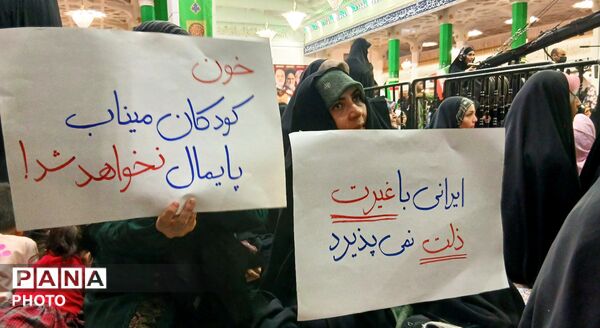 خون
کودکان میناب
پایمال نخواهد شد!
ایرانی با غیرت
ذلت نمی پذیرد
PANA
PHOTO